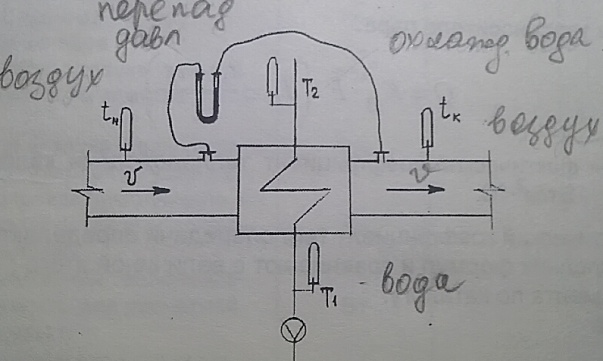 перепад
давл
охлажд. вода
воздух
T₂
tн
tк
воздух
v
v
T₁
- вода